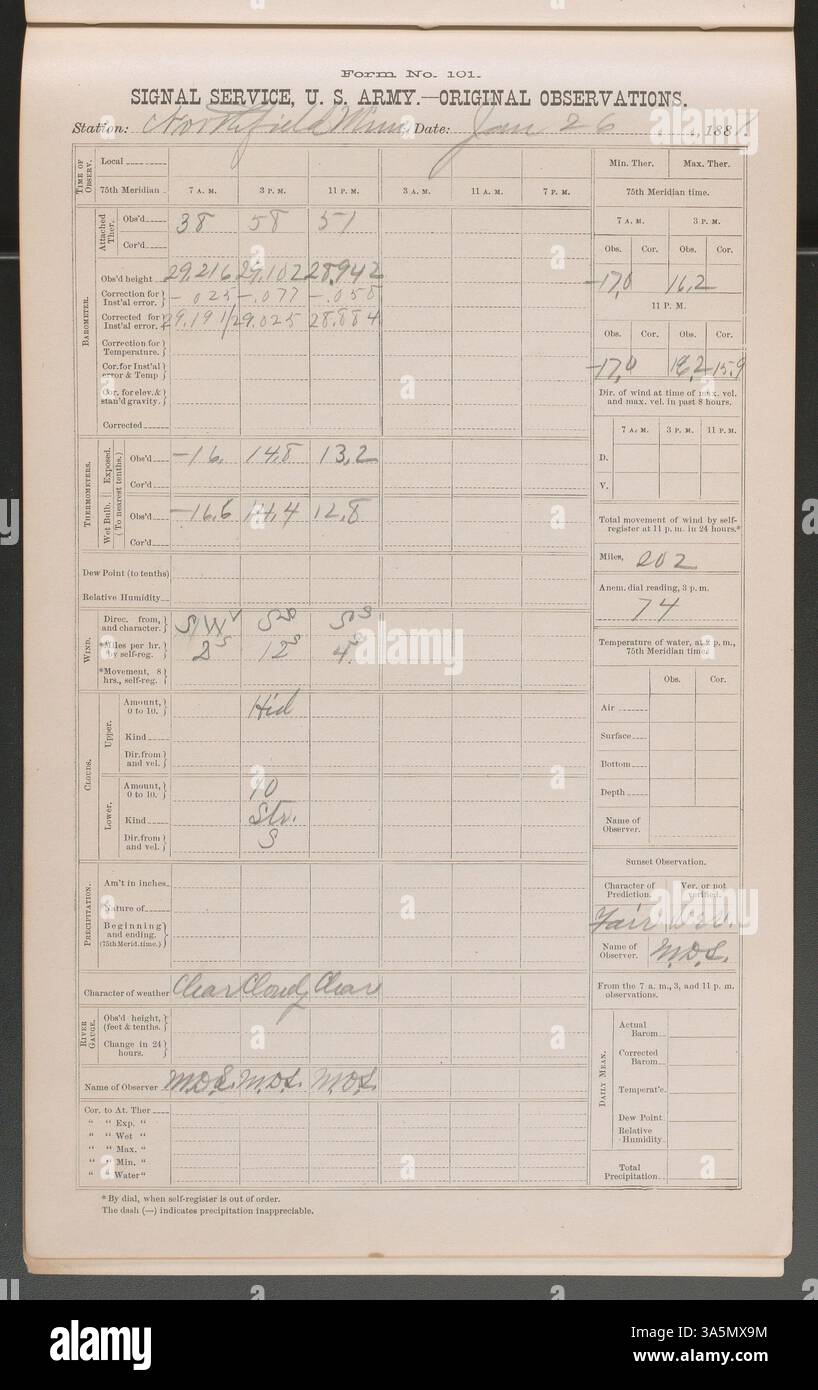 Form No. 101.
SIGNAL SERVICE, U. S. ARMY.—ORIGINAL OBSERVATIONS.
Station: Northfield Minn. Date: Jan 26, 1881.
TIME OF OBSERV. Local
75th Meridian 7 A. M. 3 P. M. 11 P. M. 3 A. M. 11 A. M. 7 P. M.
Attached Ther. Obs'd 38 58 51
Cor'd
BAROMETER.
Obs'd height 29.216 29.102 28.942
Correction for Inst'al error. -.025 -.077 -.058
Corrected for Inst'al error. 29.191 29.025 28.884
Correction for Temperature.
Cor. for Inst'al error & Temp
Cor. for elev. & stan'd gravity.
Corrected
THERMOMETERS. (To nearest tenths.)
Exposed. Obs'd -16. 14,8 13,2
Cor'd
Wet Bulb. Obs'd -16,6 14,4 12,8
Cor'd
Dew Point (to tenths)
Relative Humidity
WIND.
Direc. from, and character. SW S S
*Miles per hr. by self-reg. 2 12 4
*Movement, 8 hrs., self-reg.
CLOUDS.
Upper. Amount, 0 to 10. Hid
Kind
Dir. from and vel.
Lower. Amount, 0 to 10. 10
Kind Str.
Dir. from and vel. S
PRECIPITATION.
Am't in inches
Nature of
Beginning and ending. (75th Merid. time.)
Character of weather Clear Cloudy Clear
RIVER GAUGE.
Obs'd height, (feet & tenths.)
Change in 24 hours.
Name of Observer M.D.S. M.D.S. M.D.S.
Cor. to At. Ther
" " Exp. "
" " Wet "
" " Max. "
" " Min. "
" " Water"
*By dial, when self-register is out of order.
The dash (—) indicates precipitation inappreciable.
Min. Ther. Max. Ther.
75th Meridian time.
7 A. M. 3 P. M.
Obs. Cor. Obs. Cor.
-17,0 16,2
11 P. M.
Obs. Cor. Obs. Cor.
-17,0 16,2 15,9
Dir. of wind at time of max. vel. and max. vel. in past 8 hours.
7 A. M. 3 P. M. 11 P. M.
D.
V.
Total movement of wind by self-register at 11 p. m. in 24 hours.*
Miles, 202
Anem. dial reading, 3 p. m.
74
Temperature of water, at 2 p. m., 75th Meridian time.
Obs. Cor.
Air
Surface
Bottom
Depth
Name of Observer.
Sunset Observation.
Character of Prediction. Ver. or not verified.
Fair Ver.
Name of Observer. M.D.S.
From the 7 a. m., 3, and 11 p. m. observations.
DAILY MEAN.
Actual Barom.
Corrected Barom.
Temperat'e.
Dew Point
Relative Humidity
Total Precipitation.
alamy
Image ID: 3A5MX9M
www.alamy.com